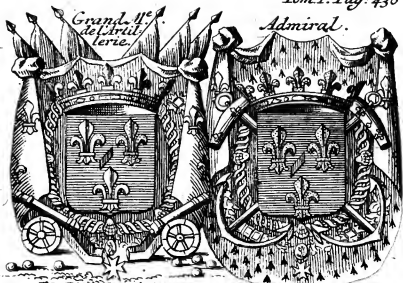 Tom. I. Pag. 430
Grand Me.
de l'Artil-
lerie.
Admiral.